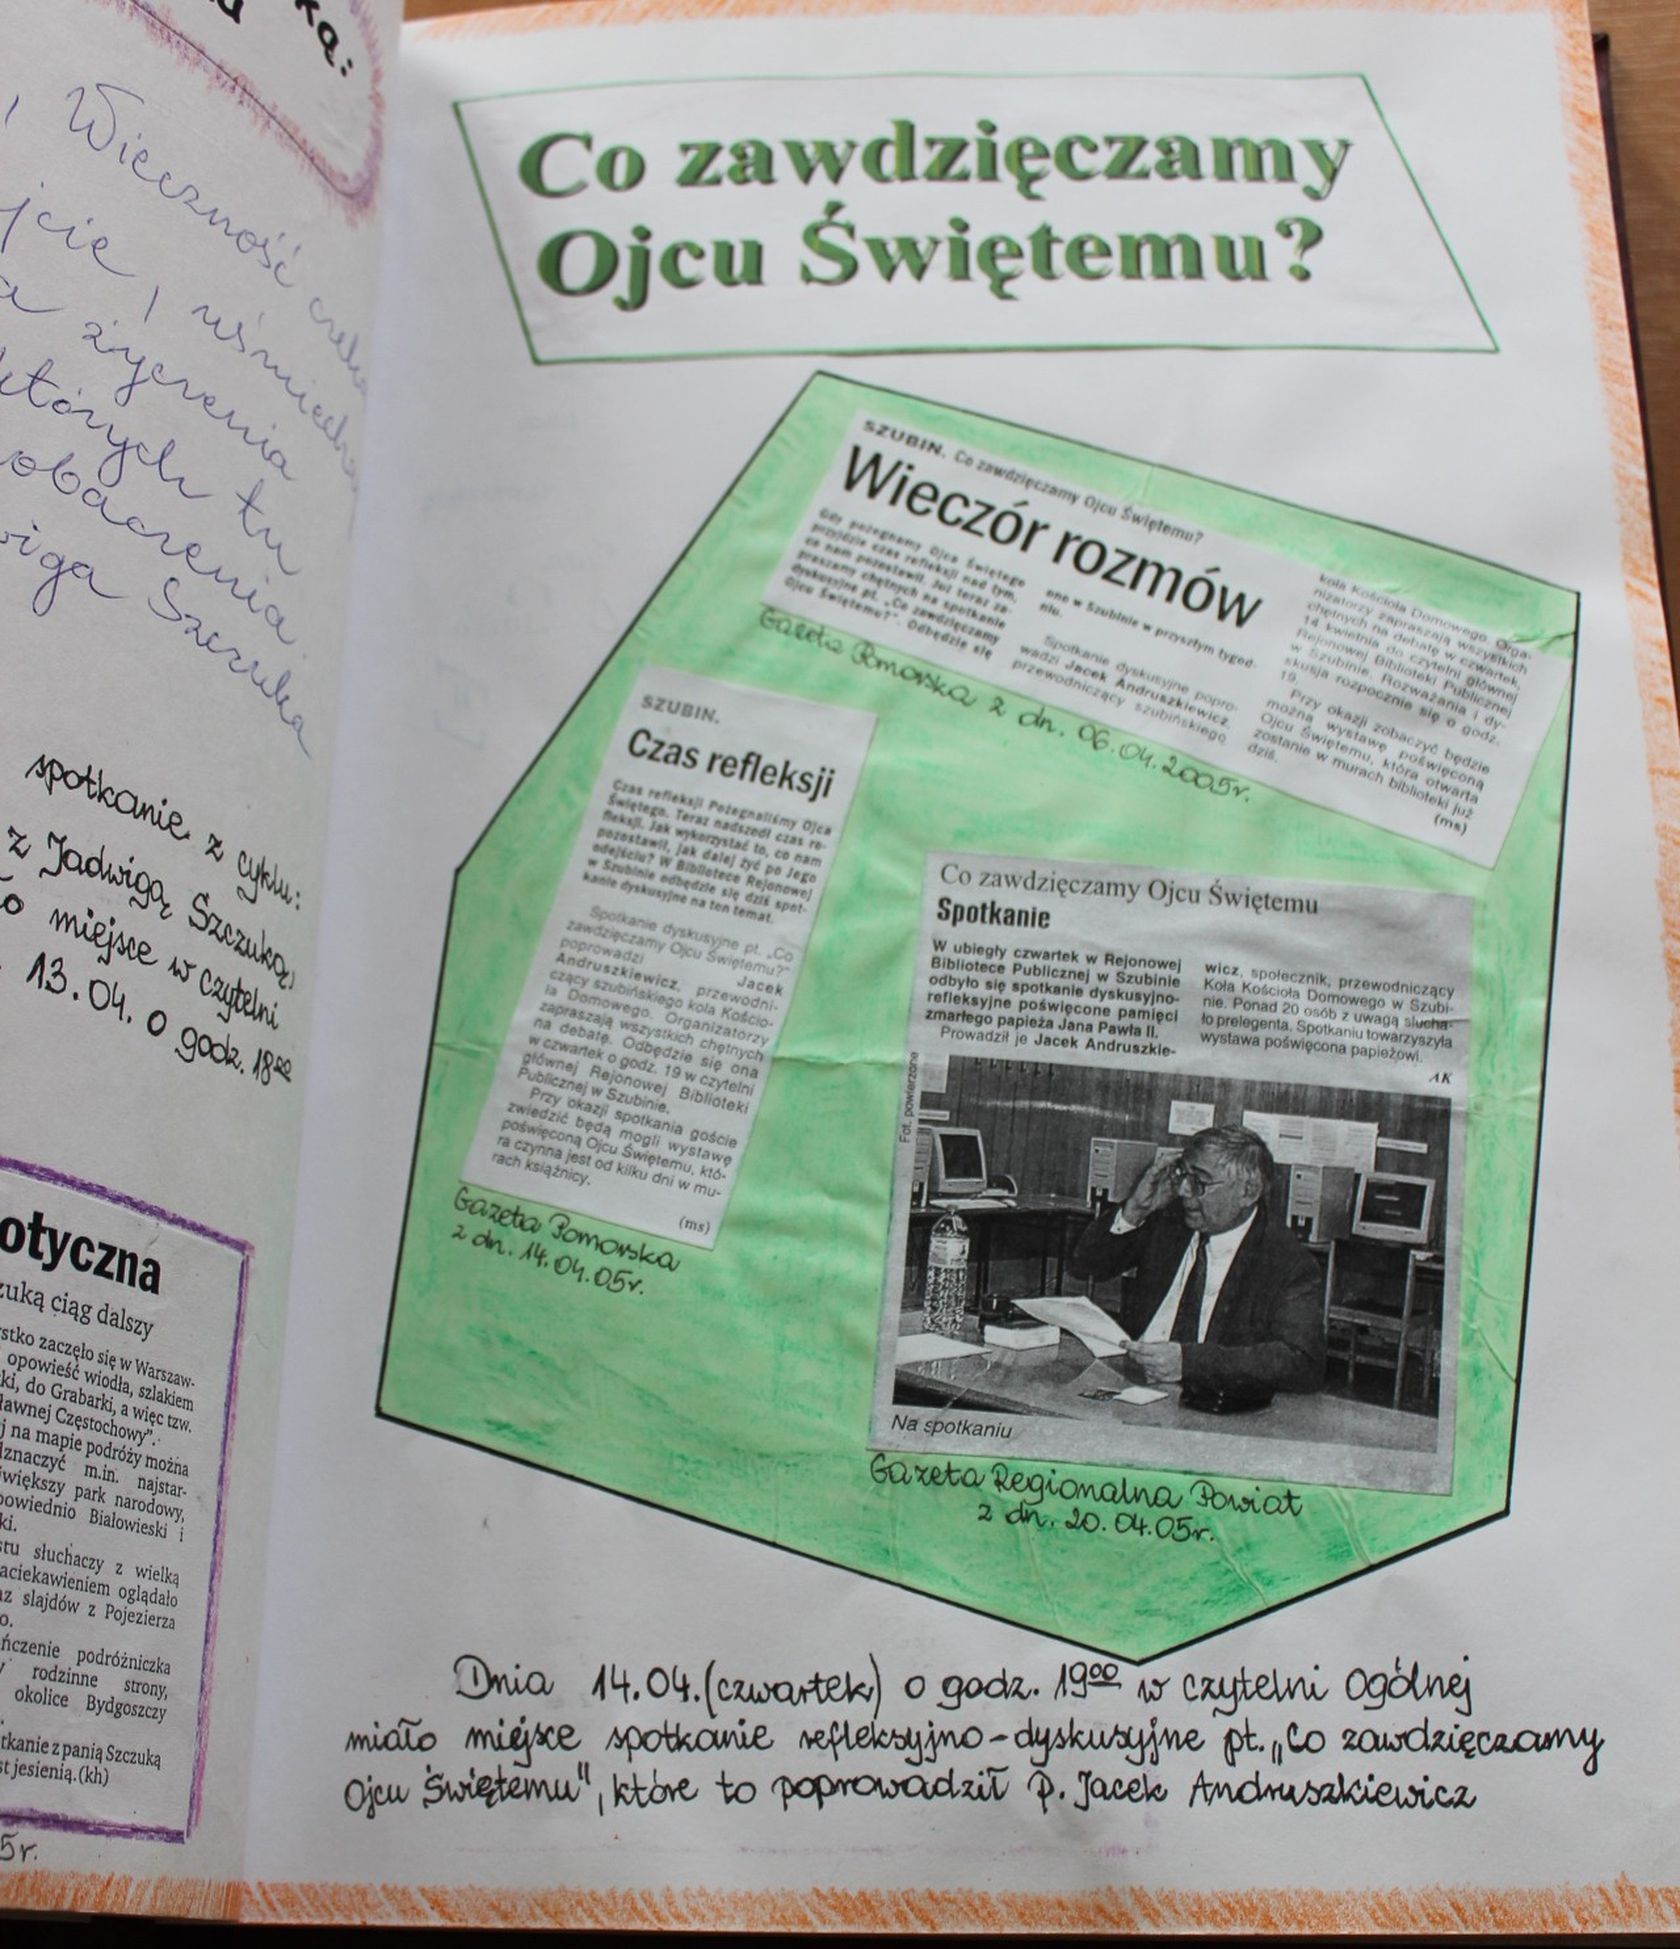 ką:
Wieczność czeka
jcie, uśmiecha
a życzenia
których tu
obaczenia.
wiga Szczuka
spotkanie z cyklu:
z Jadwigą Szczuką,
ło miejsce w czytelni
13.04. o godz. 18⁰⁰
otyczna
zuką ciąg dalszy
stko zaczęło się w Warszaw-
opowieść wiodła, szlakiem
ki, do Grabarki, a więc tzw.
ławnej Częstochowy".
j na mapie podróży można
dznaczyć m.in. najstar-
jwiększy park narodowy,
powiednio Białowieski i
ki.
stu słuchaczy z wielką
aciekawieniem oglądało
az slajdów z Pojezierza
o.
ńczenie podróżniczka
rodzinne strony,
okolice Bydgoszczy
tkanie z panią Szczuką
st jesienią.(kh)
5r.
Co zawdzięczamy
Ojcu Świętemu?
SZUBIN. Co zawdzięczamy Ojcu Świętemu?
Wieczór rozmów
Gdy pożegnamy Ojca Świętego
przyjdzie czas refleksji nad tym,
co nam pozostawił. Już teraz za-
praszamy chętnych na spotkanie
dyskusyjne pt. „Co zawdzięczamy
Ojcu Świętemu?". Odbędzie się
ono w Szubinie w przyszłym tygod-
niu.
Spotkanie dyskusyjne popro-
wadzi Jacek Andruszkiewicz,
przewodniczący szubińskiego
koła Kościoła Domowego. Orga-
nizatorzy zapraszają wszystkich
chętnych na debatę w czwartek,
14 kwietnia do czytelni głównej
Rejonowej Biblioteki Publicznej
w Szubinie. Rozważania i dy-
skusja rozpocznie się o godz.
19.
Przy okazji zobaczyć będzie
można wystawę poświęconą
Ojcu Świętemu, która otwarta
zostanie w murach biblioteki już
dziś.
(ms)
Gazeta Pomorska z dn. 06.04.2005r.
SZUBIN.
Czas refleksji
Czas refleksji Pożegnaliśmy Ojca
Świętego. Teraz nadszedł czas re-
fleksji. Jak wykorzystać to, co nam
pozostawił, jak dalej żyć po Jego
odejściu? W Bibliotece Rejonowej
w Szubinie odbędzie się dziś spot-
kanie dyskusyjne na ten temat.
Spotkanie dyskusyjne pt. „Co
zawdzięczamy Ojcu Świętemu?"
poprowadzi Jacek
Andruszkiewicz, przewodni-
czący szubińskiego koła Kościo-
ła Domowego. Organizatorzy
zapraszają wszystkich chętnych
na debatę. Odbędzie się ona
w czwartek o godz. 19 w czytelni
głównej Rejonowej Biblioteki
Publicznej w Szubinie.
Przy okazji spotkania goście
zwiedzić będą mogli wystawę
poświęconą Ojcu Świętemu, któ-
ra czynna jest od kilku dni w mu-
rach książnicy.
(ms)
Gazeta Pomorska
z dn. 14.04.05r.
Co zawdzięczamy Ojcu Świętemu
Spotkanie
W ubiegły czwartek w Rejonowej
Bibliotece Publicznej w Szubinie
odbyło się spotkanie dyskusyjno-
refleksyjne poświęcone pamięci
zmarłego papieża Jana Pawła II.
Prowadził je Jacek Andruszkie-
wicz, społecznik, przewodniczący
Koła Kościoła Domowego w Szubi-
nie. Ponad 20 osób z uwagą słucha-
ło prelegenta. Spotkaniu towarzyszyła
wystawa poświęcona papieżowi.
AK
Fot. powierzone
Na spotkaniu
Gazeta Regionalna Powiat
z dn. 20.04.05r.
Dnia 14.04.(czwartek) o godz. 19⁰⁰ w czytelni Ogólnej
miało miejsce spotkanie refleksyjno-dyskusyjne pt. „Co zawdzięczamy
Ojcu Świętemu", które to poprowadził p. Jacek Andruszkiewicz